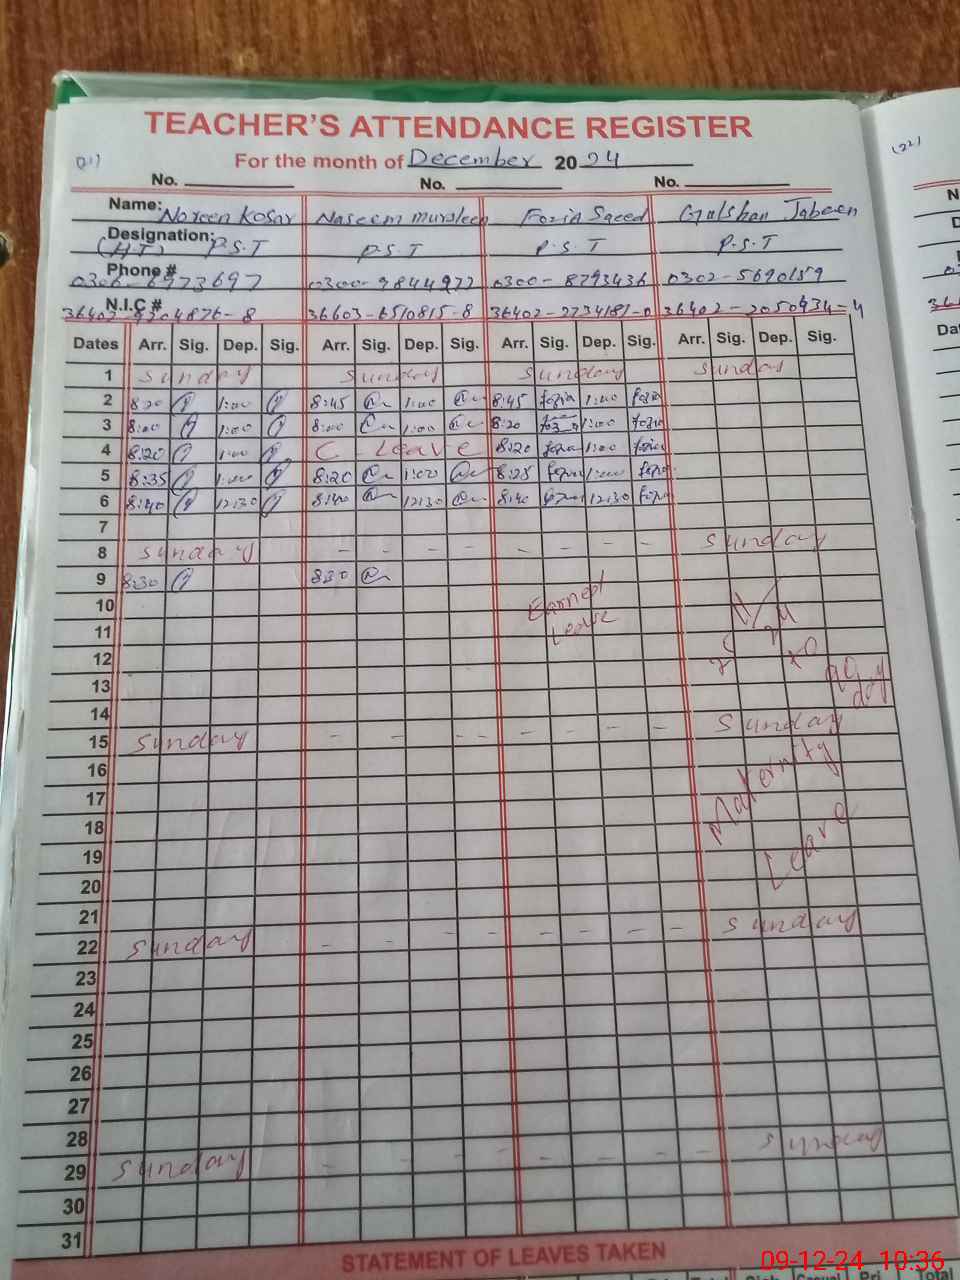 TEACHER'S ATTENDANCE REGISTER
(21) For the month of December 2024
(22)
No. No. No.
Name: Noreen Kosar Naseem mursleen Fozia Saeed Gulshan Jabeen
Designation: (H.T) P.S.T P.S.T P.S.T P.S.T
Phone # 0306-6973697 0300-9844977 0300-8793436 0302-5690159
N.I.C # 36603-6510815-8 36402-2050934-4
Dates Arr. Sig. Dep. Sig. Arr. Sig. Dep. Sig. Arr. Sig. Dep. Sig. Arr. Sig. Dep. Sig.
1 Sunday Sunday Sunday Sunday
2 8:20 1:00 8:45 1:00 8:45 fozia 1:00 fozia
3 8:00 1:00 8:00 1:00 8:20 1:00 fozia
4 8:20 1:00 C - Leave 8:20 fozia 1:00 fozia
5 8:35 1:00 8:20 1:00 8:25 fozia 1:00 fozia
6 8:40 12:30 8:40 12:30 8:40 fozia 12:30 fozia
7
8 Sunday - - - - - - - - Sunday
9 8:30 8:30
10 Earned
11 Leave
12
13 90 day
14
15 Sunday - - - - - - - - Sunday
16 Maternity
17
18
19 Leave
20
21
22 Sunday - - - - - - - - Sunday
23
24
25
26
27
28
29 Sunday - - - - - - - - Sunday
30
31
STATEMENT OF LEAVES TAKEN
09-12-24 10:36
Total